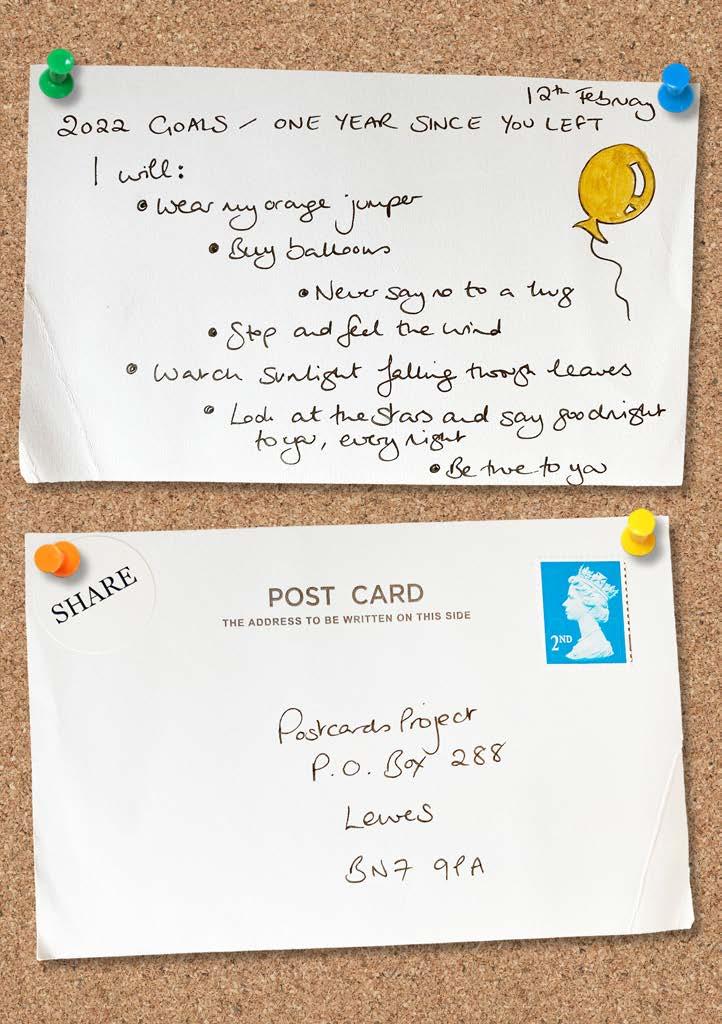 12th February
2022 GOALS / ONE YEAR SINCE YOU LEFT
I will:
• Wear my orange jumper
• Buy balloons
• Never say no to a hug
• Stop and feel the wind
• Watch sunlight falling through leaves
• Look at the stars and say goodnight
to you, every night
• Be true to you
SHARE
POST CARD
THE ADDRESS TO BE WRITTEN ON THIS SIDE
2ND
Postcards Project
P.O. Box 288
Lewes
BN7 9PA